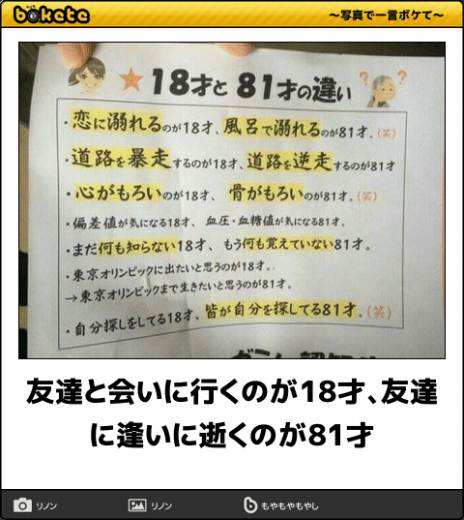 bokete
～写真で一言ボケて～
★18才と81才の違い
??
・恋に溺れるのが18才、風呂で溺れるのが81才。(笑)
・道路を暴走するのが18才、道路を逆走するのが81才
・心がもろいのが18才、骨がもろいのが81才。(笑)
・偏差値が気になる18才、血圧・血糖値が気になる81才。
・まだ何も知らない18才、もう何も覚えていない81才。
・東京オリンピックに出たいと思うのが18才。
→東京オリンピックまで生きたいと思うのが81才。
・自分探しをしてる18才、皆が自分を探してる81才。(笑)
友達と会いに行くのが18才、友達
に逢いに逝くのが81才
リノン リノン もやもやもやし